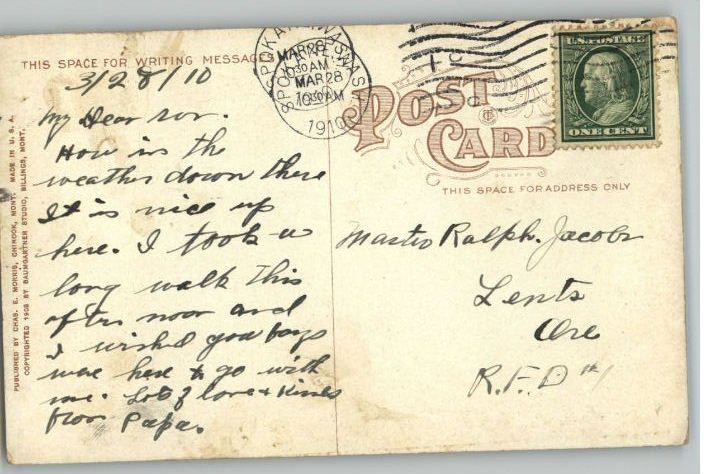 THIS SPACE FOR WRITING MESSAGES
3/28/10
My Dear son.
How is the
weather down there
It is nice up
here. I took a
long walk this
after noon and
I wished you boys
were here to go with
me. Lots of love & Kisses
from Papa.
SPOKANE, WASH.
MAR 28
10 30 AM
1910
POST
CARD
U.S. POSTAGE
ONE CENT
THIS SPACE FOR ADDRESS ONLY
Master Ralph. Jacobs
Lents
Ore
R.F.D #1
PUBLISHED BY CHAS. E. MORRIS, CHINOOK, MONT. MADE IN U.S.A.
COPYRIGHTED 1908 BY BAUMGARTNER STUDIO, BILLINGS, MONT.